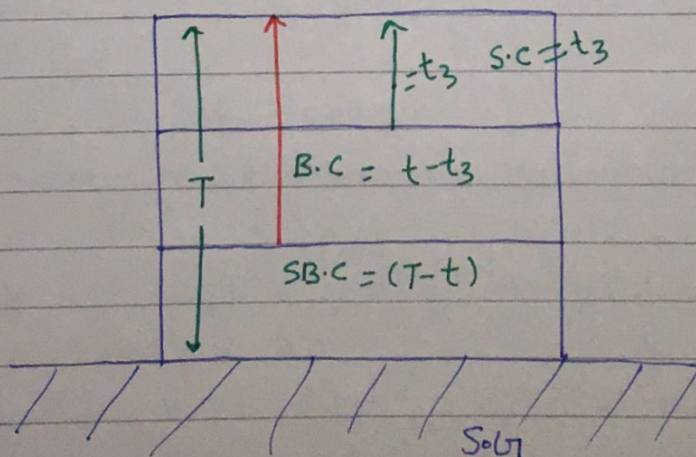 = t3
S.C = t3
T
B.C = t-t3
SB.C = (T-t)
SOG